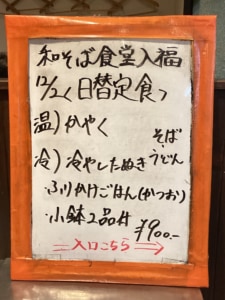 和そば食堂入福
12/2く日替定食っ
温)かやく
そば
冷)冷やしたぬき
うどん
・ふりかけごはん(かつお)
・小鉢2品付
¥900.-
入口こちら→